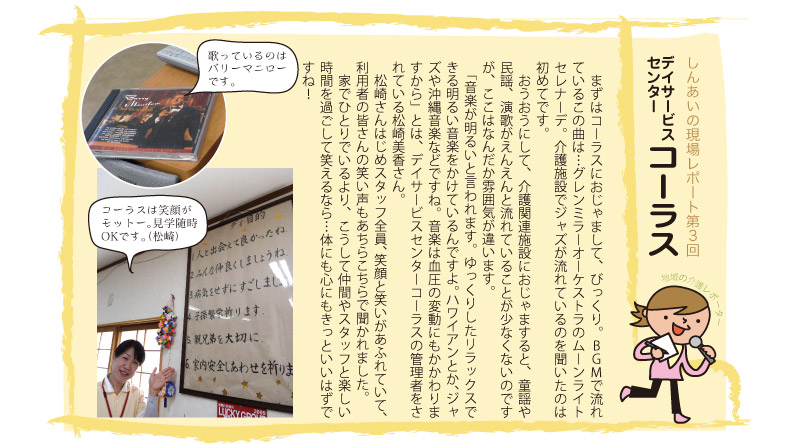 しんあいの現場レポート第3回
デイサービス
センター
コーラス
地域の介護レポーター
まずはコーラスにおじゃまして、びっくり。BGMで流れ
ているこの曲は…グレンミラーオーケストラのムーンライト
セレナーデ。介護施設でジャズが流れているのを聞いたのは
初めてです。
おうおうにして、介護関連施設におじゃますると、童謡や
民謡、演歌がえんえんと流れていることが少なくないのです
が、ここはなんだか雰囲気が違います。
「音楽が明るいと言われます。ゆっくりしたリラックスで
きる明るい音楽をかけているんですよ。ハワイアンとか、ジャ
ズや沖縄音楽などですね。音楽は血圧の変動にもかかわりま
すから」とは、デイサービスセンターコーラスの管理者をさ
れている松崎美香さん。
松崎さんはじめスタッフ全員、笑顔と笑いがあふれていて、
利用者の皆さんの笑い声もあちらこちらで聞かれました。
家でひとりでいるより、こうして仲間やスタッフと楽しい
時間を過ごして笑えるなら…体にも心にもきっといいはずで
すね！
歌っているのは
バリーマニロー
です。
Barry
Manilow
コーラスは笑顔が
モットー。見学随時
OKです。（松崎）
目的
1.人と出会えて良かったね
2.みんな仲良くしましょうね
3.病気をせずにすごしまし
4.子孫繁栄祈ります
5.親兄弟を大切に
6.家内安全しあわせを祈りま
LUCKY GROUP